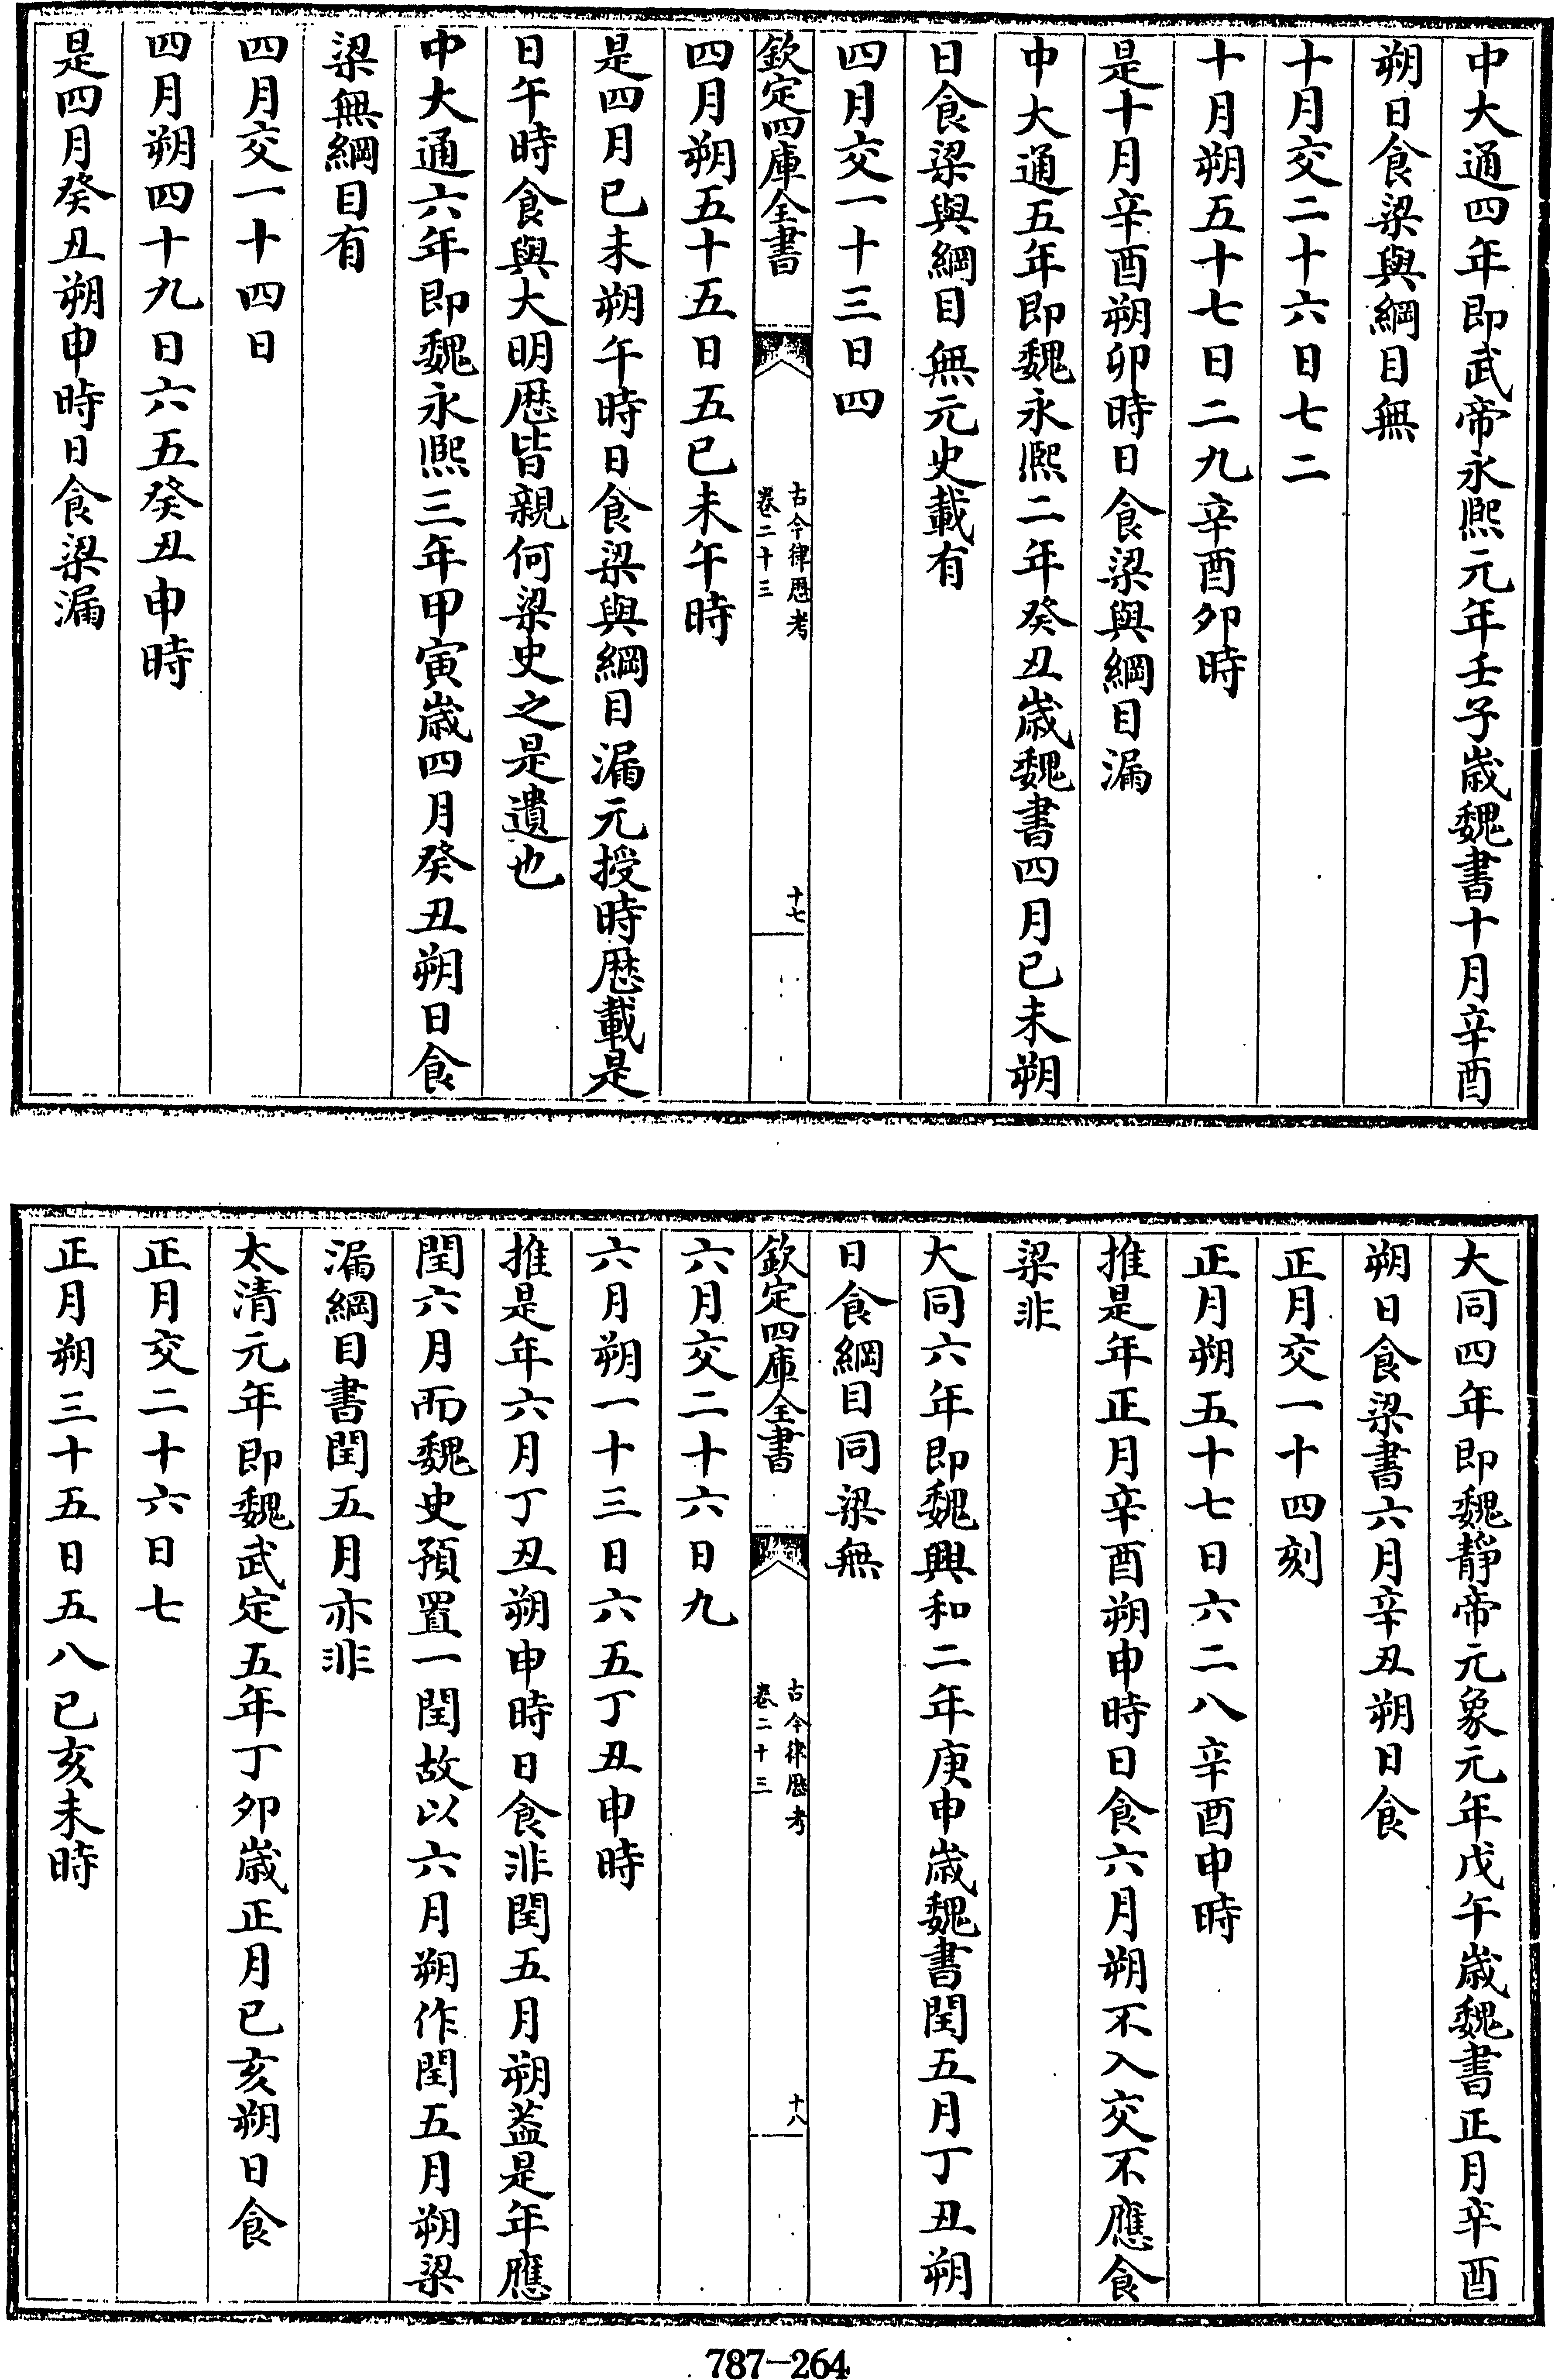 中大通四年即武帝永熙元年壬子歳魏書十月辛酉
朔日食梁與綱目無
十月交二十六日七二
十月朔五十七日二九辛酉卯時
是十月辛酉朔卯時日食梁與綱目漏
中大通五年即魏永熙二年癸丑歳魏書四月已未朔
日食梁與綱目無元史載有
四月交一十三日四
欽定四庫全書
古今律厯考
卷二十三
十七
四月朔五十五日五已未午時
是四月已未朔午時日食梁與綱目漏元授時厯載是
日午時食與大明厯皆親何梁史之是遺也
中大通六年即魏永熙三年甲寅歳四月癸丑朔日食
梁無綱目有
四月交一十四日
四月朔四十九日六五癸丑申時
是四月癸丑朔申時日食梁漏
大同四年即魏靜帝元象元年戊午歳魏書正月辛酉
朔日食梁書六月辛丑朔日食
正月交一十四刻
正月朔五十七日六二八辛酉申時
推是年正月辛酉朔申時日食六月朔不入交不應食
梁非
大同六年即魏興和二年庚申歳魏書閏五月丁丑朔
日食綱目同梁無
欽定四庫全書
古今律厯考
卷二十三
十八
六月交二十六日九
六月朔一十三日六五丁丑申時
推是年六月丁丑朔申時日食非閏五月朔葢是年應
閏六月而魏史預置一閏故以六月朔作閏五月朔梁
漏綱目書閏五月亦非
太清元年即魏武定五年丁卯歳正月已亥朔日食
正月交二十六日七
正月朔三十五日五八已亥未時
787-264